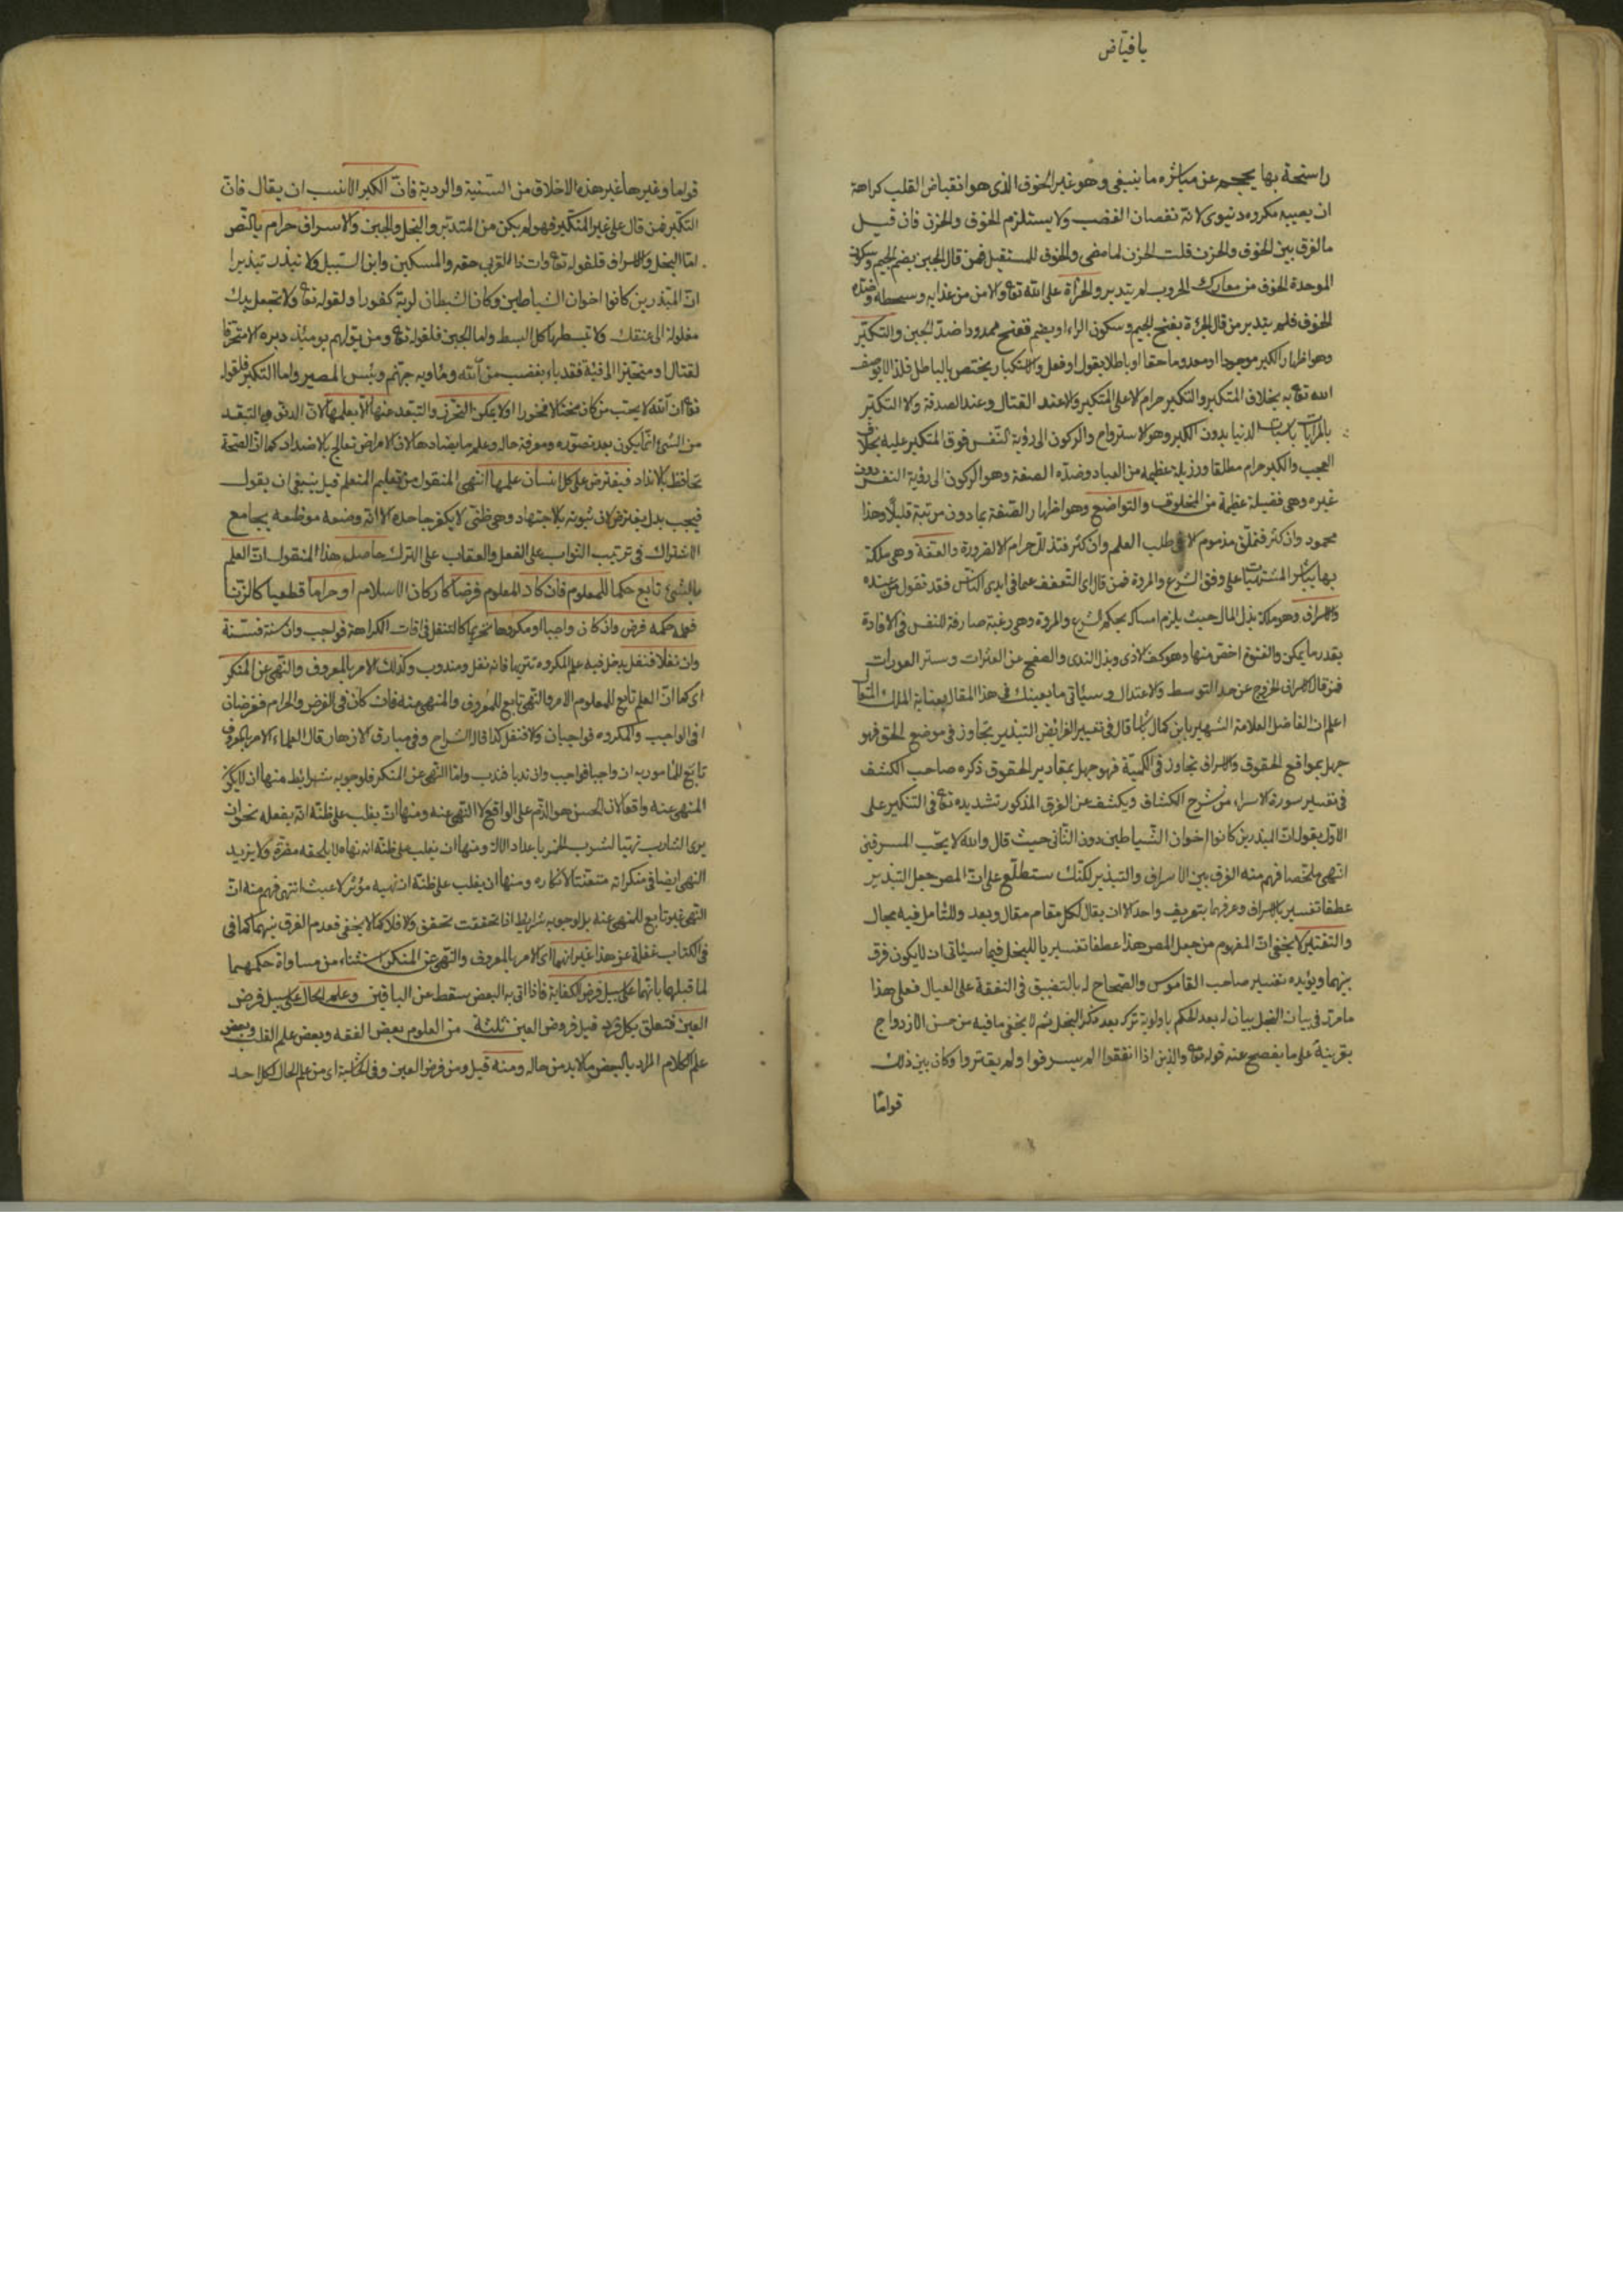 يا فياض
راسخة بها يحجم عن مباشرة ما ينبغي وهو غير الخوف الذي هو انقباض القلب كراهة
ان يصيبه مكروه دنيوى لانه نقصان الغضب ولا يستلزم الخوف والحزن فان قيل
ما الفرق بين الخوف والحزن قلت الحزن لما مضى والخوف للمستقبل فمن قال الجبن بضم الجيم وسكون
الموحدة الخوف من معارك الحروب لم يتدبر والجرأة على الله تع والامن من عذابه وسخطه وضده
الخوف فلم يتدبر من قال الجرءة بفتح الجيم وسكون الراء او بضم ففتح ممدودا ضد الجبن والتكبر
وهو اظهار الكبر موجودا او معدوما حقا او باطلا بقول او فعل والاستكبار يختص بالباطل فلذا لا يوصف
الله تع به بخلاف المتكبر والتكبر حرام لا على المتكبر ولا عند القتال وعند الصدقة ولا التكبر
باسباب الدنيا بدون الكبر وهو الاسترواح والركون الى رؤية النفس فوق المتكبر عليه بخلاف
العجب والكبر حرام مطلقا ورذيلة عظيمة من العباد وضده الضعة وهو الركون الى رؤية النفس دون
غيره وهى فضيلة عظيمة من المخلوق والتواضع وهو اظهار الضعة بما دون مرتبة قليلا وهذا
محمود وان كثر فتملق مذموم الا فى طلب العلم وان كثر فتذلل حرام الا لضرورة والعفة وهى ملكة
بها يباشر المشتهيات على وفق الشرع والمروة فمن قال اى التعفف عما فى ايدى الناس فقد تقول من عنده
والاسراف وهو ملكة بذل المال حيث يلزم امساكه بحكم الشرع والمروة وهى رغبة صارفة للنفس فى الافادة
بقدر ما يمكن والفتوة اخص منها وهو كف الاذى وبذل الندى والصفح عن العثرات وستر العورات
فمن قال الاسراف الخروج عن حد التوسط والاعتدال وسيأتى ما يعينك فى هذا المقال بعناية الملك المتعال
اعلم ان الفاضل العلامة الشهير بابن كمال باشا قال فى تفسير الفرائض التبذير تجاوز فى موضع الحق فهو
جهل بمواقع الحقوق والاسراف تجاوز فى الكمية فهو جهل بمقادير الحقوق ذكره صاحب الكشف
فى تفسير سورة الاسراء من شرح الكشاف ويكشف عن الفرق المذكور تشديده تع فى التنكير على
الاول بقوله ان المبذرين كانوا اخوان الشياطين دون الثانى حيث قال والله لا يحب المسرفين
انتهى ملخصا فهم منه الفرق بين الاسراف والتبذير لكنك ستطلع على ان المص جعل التبذير
عطفا تفسيريا للاسراف وعرفهما بتعريف واحد الا ان يقال لكل مقام مقال وبعد وللتأمل فيه مجال
والتقتير لا يخفى ان المفهوم من جعل المص هذا عطفا تفسيريا للبخل فيما سيأتى ان لا يكون فرق
بينهما ويؤيده تفسير صاحب القاموس والصحاح له بالتضييق فى النفقة على العيال فعلى هذا
ما مر فى بيان البخل بيان له بعد الحكم باولوية تركه بعد ذكر البخل ثم لا يخفى ما فيه من حسن الازدواج
بقرينة على ما يفصح عنه قوله تع والذين اذا انفقوا لم يسرفوا ولم يقتروا وكان بين ذلك
قواما
قواما وغيرها غير هذه الاخلاق من السنية والردية فان الكبر الانسب ان يقال فان
التكبر فمن قال على غير المتكبر فهو لم يكن من المتدبر والبخل والجبن والاسراف حرام بالنص
اما البخل والاسراف فلقوله تع وات ذا القربى حقه والمسكين وابن السبيل ولا تبذر تبذيرا
ان المبذرين كانوا اخوان الشياطين وكان الشيطان لربه كفورا ولقوله تع ولا تجعل يدك
مغلولة الى عنقك ولا تبسطها كل البسط واما الجبن فلقوله تع ومن يولهم يومئذ دبره الا متحرفا
لقتال او متحيزا الى فئة فقد باء بغضب من الله ومأويه جهنم وبئس المصير واما التكبر فلقوله
تع ان الله لا يحب من كان مختالا فخورا ولا يمكن التحرز والتبعد عنها الا بعلمها لان التبعد
من الشئ انما يكون بعد تصوره ومعرفة حاله وعلم ما يضادها لان الامراض تعالج بالاضداد كما ان الصحة
تحافظ بالانداد فيفترض على كل انسان علمها انتهى المنقول من تعليم المتعلم قيل ينبغى ان يقول
فيجب بدل يفترض لان ثبوته بالاجتهاد وهى ظنى لا يكفر جاحده الا انه وضعه موضعه بجامع
الاشتراك فى ترتيب الثواب على الفعل والعقاب على الترك حاصل هذا المنقول ان العلم
بالشئ تابع حكما للمعلوم فان كان المعلوم فرضا كاركان الاسلام او حراما قطعيا كالزنا
فعلمه حكمه فرض وان كان واجبا او مكروها تحريما كالتنفل فى اوقات الكراهة فواجب وان سنة فسنة
وان نفلا فنفل يدخل فيه علم المكروه تنزيها فانه نفل ومندوب وكذلك الامر بالمعروف والنهى عن المنكر
اى كما ان العلم تابع للمعلوم الامر والنهى تابع للمعروف والمنهى عنه فان كان فى الفرض والحرام ففرضان
او فى الواجب والمكروه فواجبان والا فنفل كذا قال الشراح وفى مبارق الازهار قال العلماء الامر بالمعروف
تابع للمأمور به ان واجبا فواجب وان ندبا فندب واما النهى عن المنكر فلوجوبه شرائط منها ان لا يكون
المنهى عنه واقعا لان الحسن هو الذم على الواقع لا النهى عنه ومنها ان يغلب على ظنه انه يفعله نحو ان
يرى الشارب تهيأ لشرب الخمر باعداد الاته ومنها ان يغلب على ظنه انه ان نهاه لا يلحقه مضرة ولا يزيد
النهى ايضا فى منكراته متعنتا لانكاره ومنها ان يغلب على ظنه ان نهيه مؤثر لا عبث انتهى فهم منه ان
النهى غير تابع للمنهى عنه بل لوجوبه شرايط اذا تحققت تحقق والا فلا كما لا يخفى فعدم الفرق بينهما كما فى
فى الكتاب غفلة عن هذا غير انهما اى الامر بالمعروف والنهى عن المنكر استثناء من مساواة حكمهما
لما قبلها بانهما على سبيل فرض الكفاية فاذا اتى به البعض سقط عن الباقين وعلم الحال على سبيل فرض
العين فتتعلق بكل فرد قيل فروض العين ثلثة من العلوم بعض الفقه وبعض علم القلب وبعض
علم الكلام المراد بالبعض ما لا بد من حاله ومنه قيل ومن فرض العين وفى اى من علم الحال لكل احد